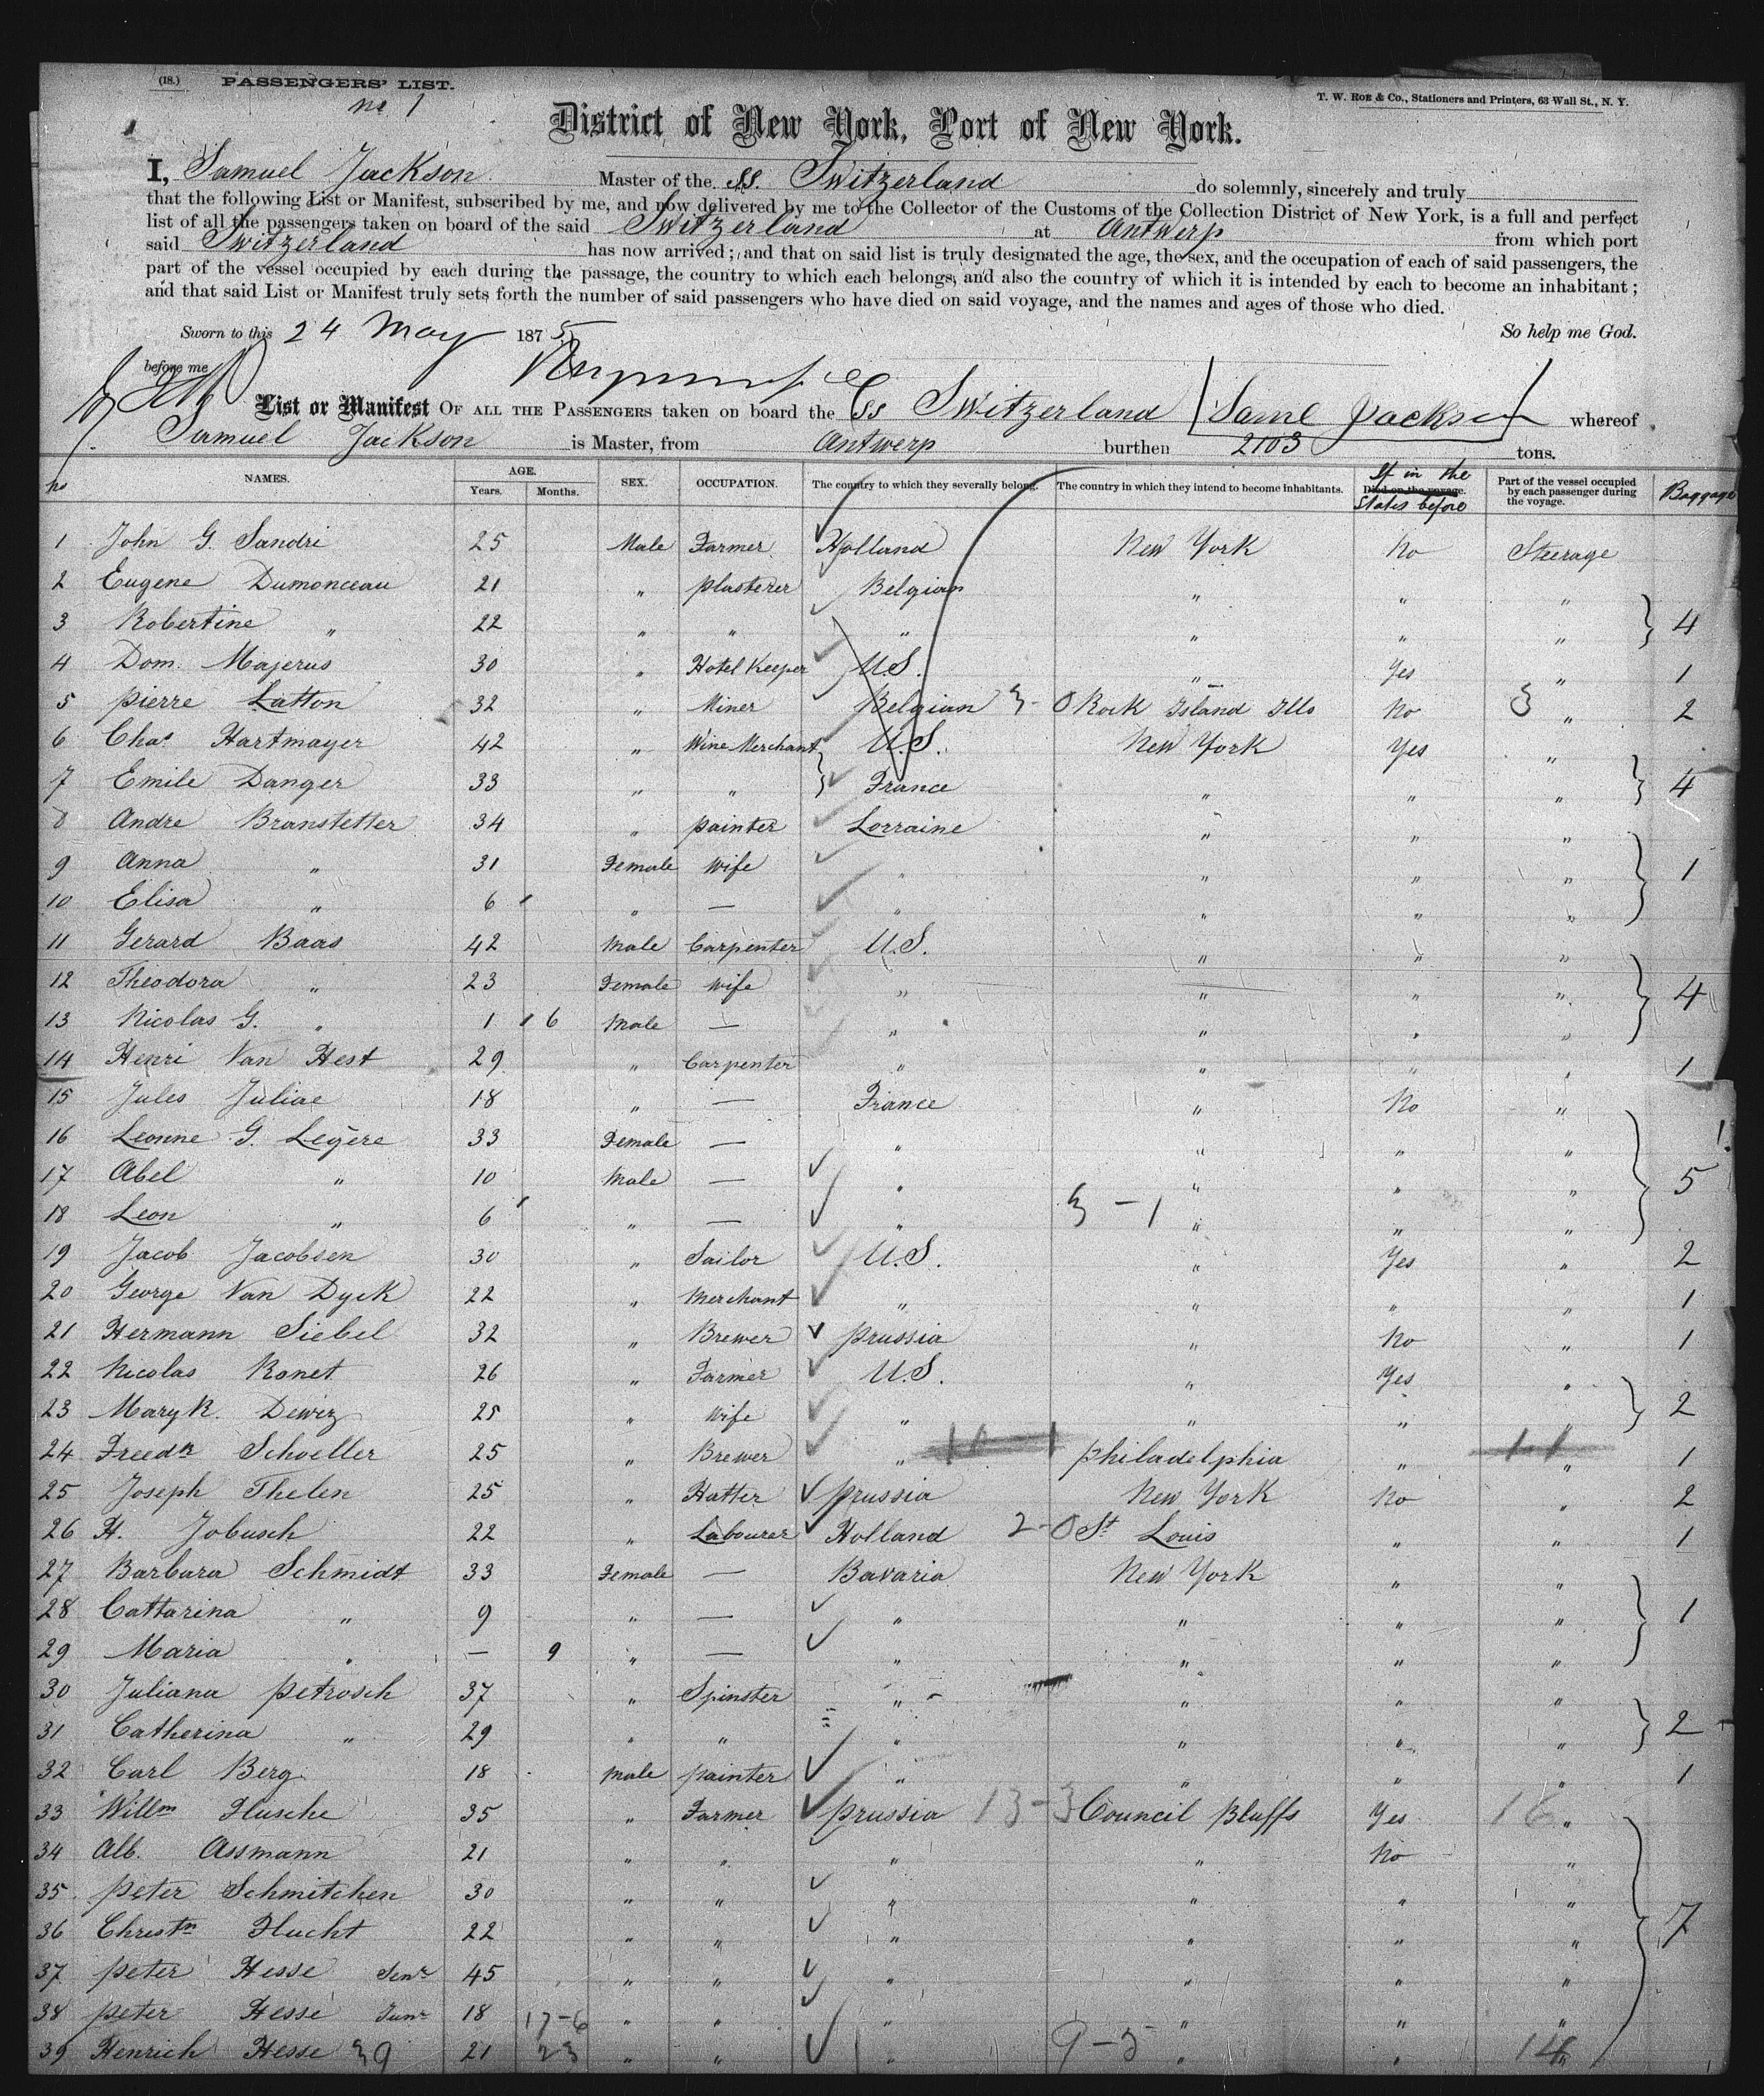 (18.) PASSENGERS' LIST.
no 1
T. W. ROE & Co., Stationers and Printers, 63 Wall St., N. Y.
District of New York, Port of New York.
I, Samuel Jackson Master of the SS. Switzerland do solemnly, sincerely and truly
that the following List or Manifest, subscribed by me, and now delivered by me to the Collector of the Customs of the Collection District of New York, is a full and perfect
list of all the passengers taken on board of the said Switzerland at Antwerp from which port
said Switzerland has now arrived; and that on said list is truly designated the age, the sex, and the occupation of each of said passengers, the
part of the vessel occupied by each during the passage, the country to which each belongs, and also the country of which it is intended by each to become an inhabitant;
and that said List or Manifest truly sets forth the number of said passengers who have died on said voyage, and the names and ages of those who died.
Sworn to this 24 May 1875 So help me God.
before me
List or Manifest OF ALL THE PASSENGERS taken on board the SS Switzerland Saml Jackson whereof
Samuel Jackson is Master, from Antwerp burthen 2103 tons.
no NAMES. AGE. Years. Months. SEX. OCCUPATION. The country to which they severally belong. The country in which they intend to become inhabitants. Died on the voyage. If in the States before Part of the vessel occupied by each passenger during the voyage. Baggage
1 John G. Sandri 25 Male Farmer Holland New York No Steerage
2 Eugene Dumonceau 21 " plasterer Belgian " " "
3 Robertine " 22 " " " " " " 4
4 Dom. Majerus 30 " Hotel Keeper U.S. " Yes " 1
5 pierre Latton 32 " Miner Belgian 3-0 Rock Island Ills No 3 " 2
6 Chas Hartmayer 42 " Wine Merchant U.S. New York Yes "
7 Emile Danger 33 " " France " " " 4
8 Andre Branstetter 34 " painter Lorraine " " "
9 Anna " 31 Female Wife " " " " 1
10 Elisa " 6 " — " " " "
11 Gerard Baas 42 Male Carpenter U.S. " " "
12 Theodora " 23 Female Wife " " " " 4
13 Nicolas G. " 1 6 Male — " " " "
14 Henri Van Hest 29 " Carpenter " " " " 1
15 Jules Juliae 18 " — France " No "
16 Leonne G. Legere 33 Female — " " " " 1
17 Abel " 10 Male — " " " " 5
18 Leon " 6 " — " 3-1 " " "
19 Jacob Jacobsen 30 " Sailor U.S. " Yes " 2
20 George Van Dyck 22 " Merchant " " " " 1
21 Hermann Siebel 32 " Brewer prussia " No " 1
22 Nicolas Ronet 26 " Farmer U.S. " Yes "
23 Mary R. Dewiz 25 " Wife " " " " 2
24 Freedk Schoeller 25 " Brewer " philadelphia " " 1
25 Joseph Thelen 25 " Hatter prussia New York No " 2
26 H. Jobusch 22 " Labourer Holland 2-0 St Louis " " 1
27 Barbara Schmidt 33 Female — Bavaria New York " "
28 Cattarina " 9 " — " " " " 1
29 Maria " — 9 " — " " " "
30 Juliana petrosch 37 " Spinster " " " "
31 Catherina " 29 " " " " " " 2
32 Carl Berg 18 Male painter " " " " 1
33 Willm Flusche 35 " Farmer prussia 13-3 Council Bluffs Yes 16 "
34 Alb. Assmann 21 " " " " No "
35 peter Schmitchen 30 " " " " " "
36 Christn Flucht 22 " " " " " " 7
37 peter Hesse Senr 45 " " " " " "
38 peter Hesse Junr 18 17-6 " " " " " "
39 Henrich Hesse 39 21 23 " " " 9-5 " " 14 "